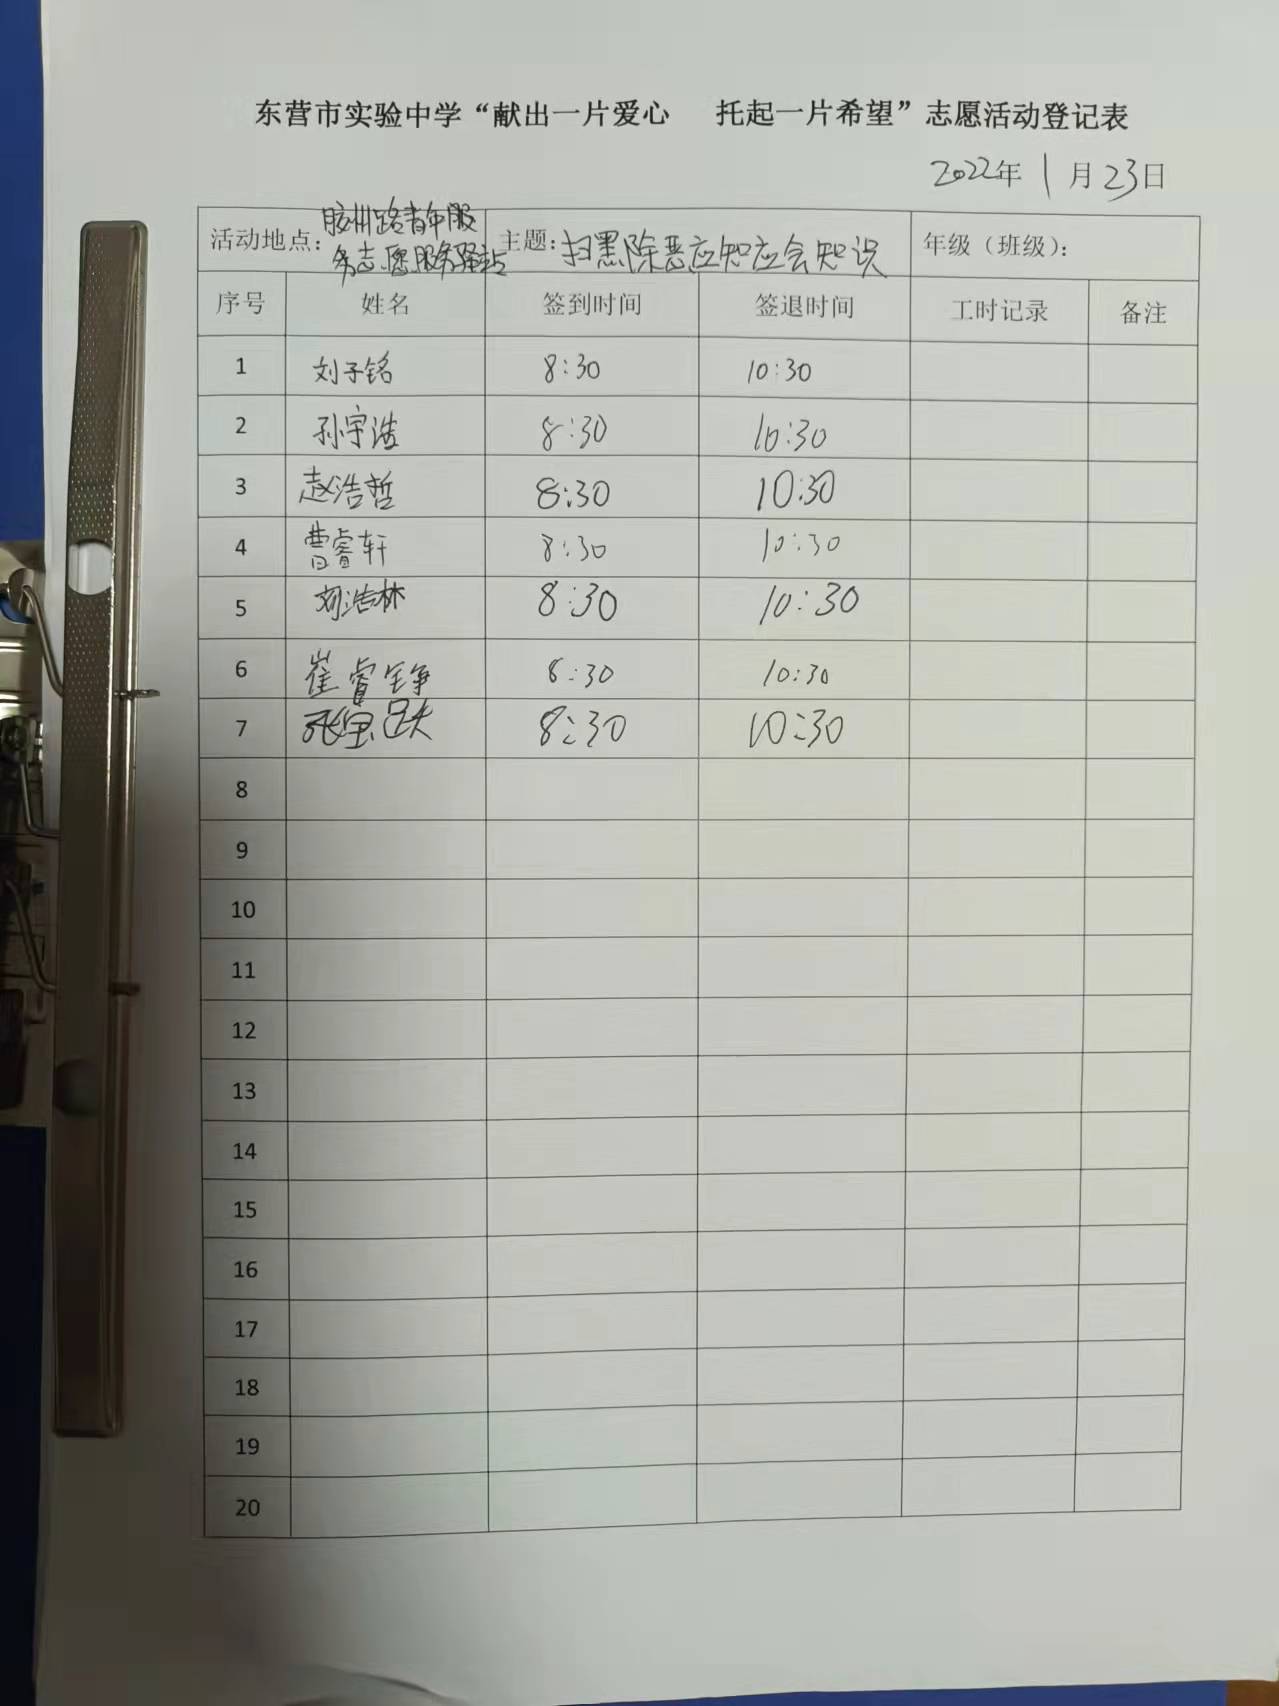 东营市实验中学“献出一片爱心 托起一片希望”志愿活动登记表
2022年 1月23日
活动地点：胶州路青年服务志愿服务驿站 主题：扫黑除恶应知应会知识 年级（班级）：
序号 姓名 签到时间 签退时间 工时记录 备注
1 刘子铭 8:30 10:30
2 孙宇浩 8:30 10:30
3 赵浩哲 8:30 10:30
4 曹睿轩 8:30 10:30
5 刘浩林 8:30 10:30
6 崔睿铮 8:30 10:30
7 张宝跃 8:30 10:30
8
9
10
11
12
13
14
15
16
17
18
19
20